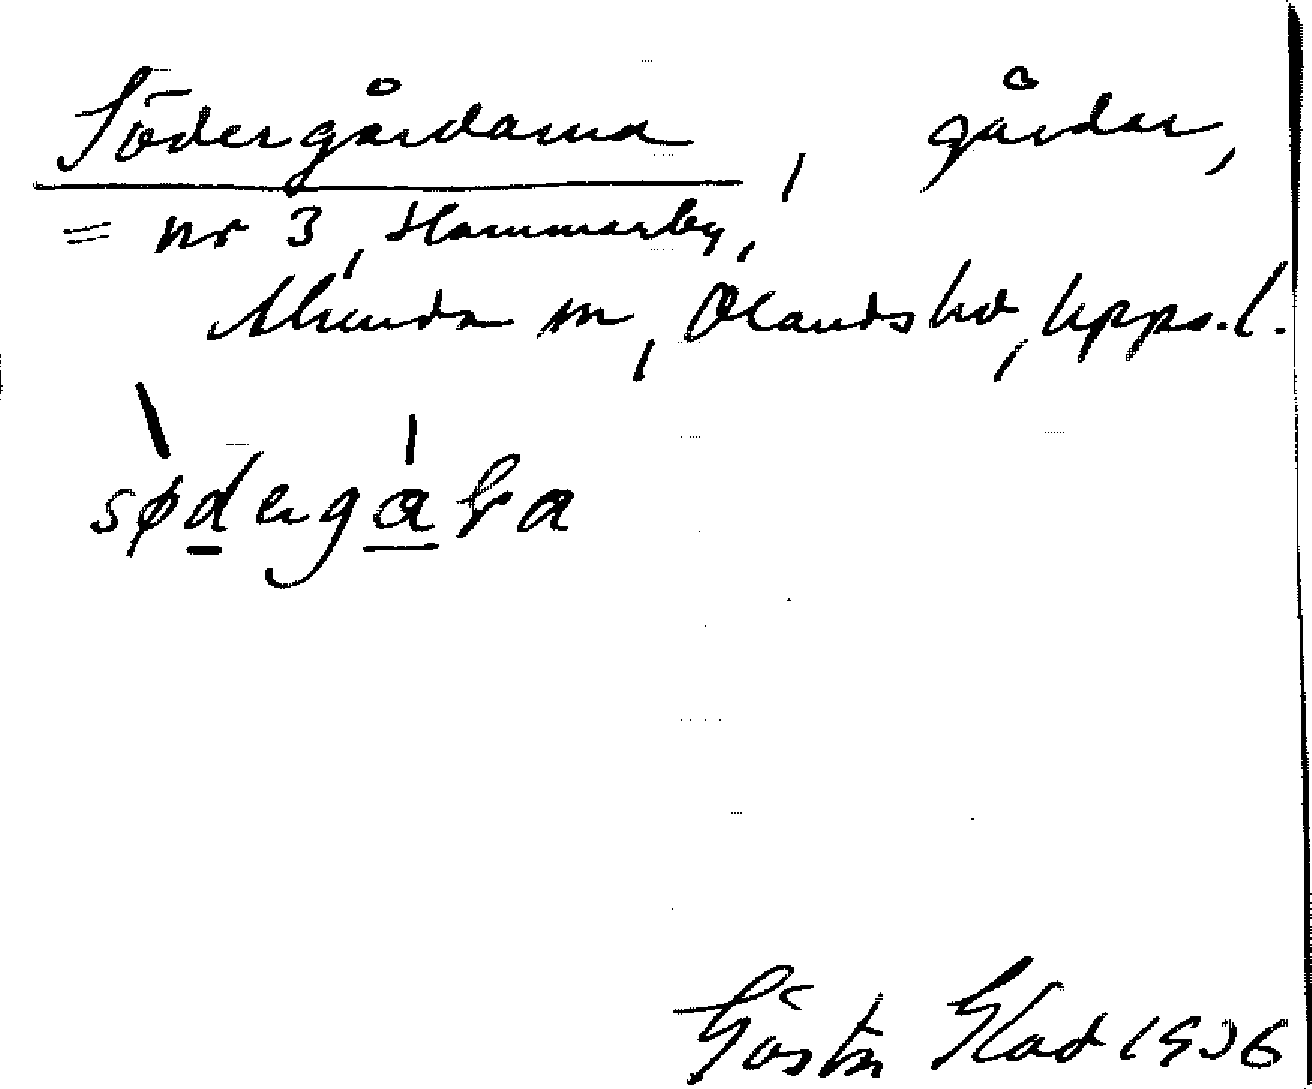 Södergårdarna, gårdar,
= nr 3, Hammarby,
Alunda sn, Olands hd, Upps. l.
södergåɽa
Gösta Klad 1936